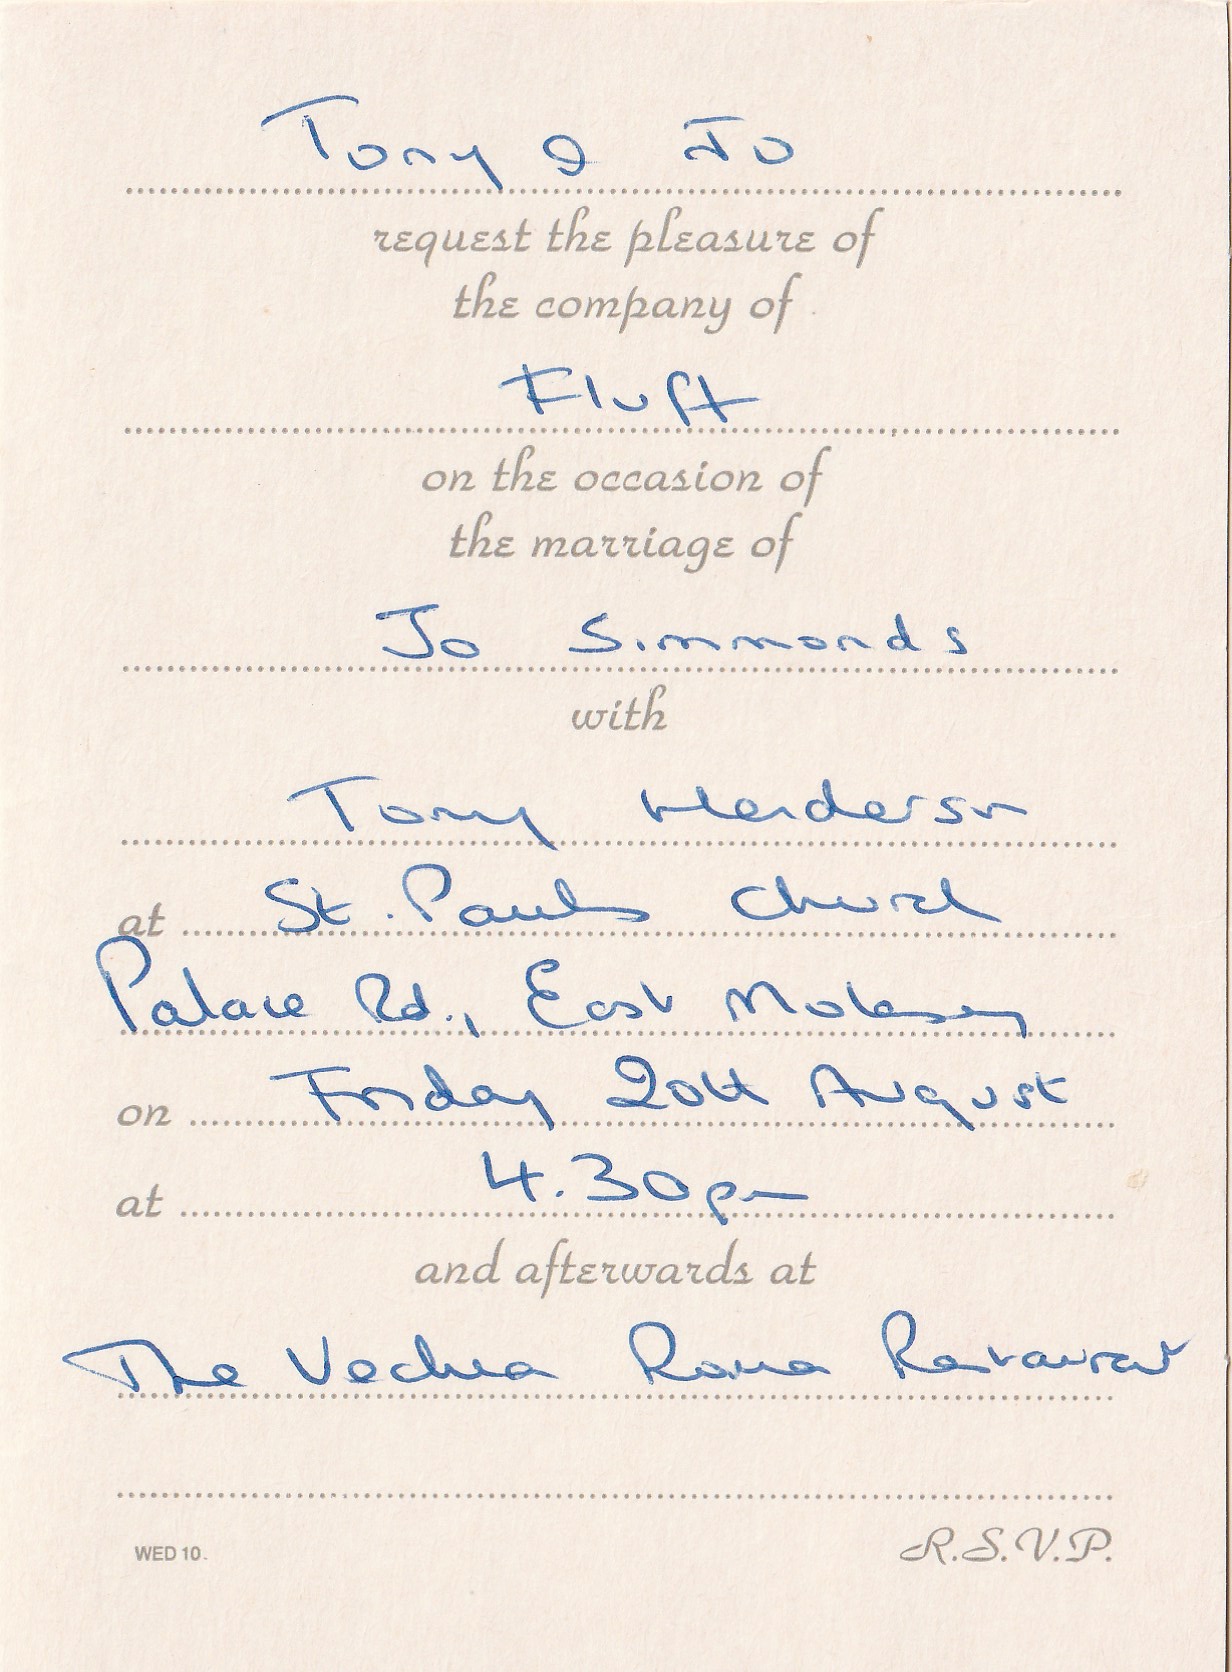 Tony & Jo
request the pleasure of
the company of
Fluff
on the occasion of
the marriage of
Jo Simmonds
with
Tony Henderson
at St. Pauls Church
Palace Rd., East Molesey
on Friday 20th August
at 4.30pm
and afterwards at
The Vechia Roma Restaurant
WED 10.
R.S.V.P.